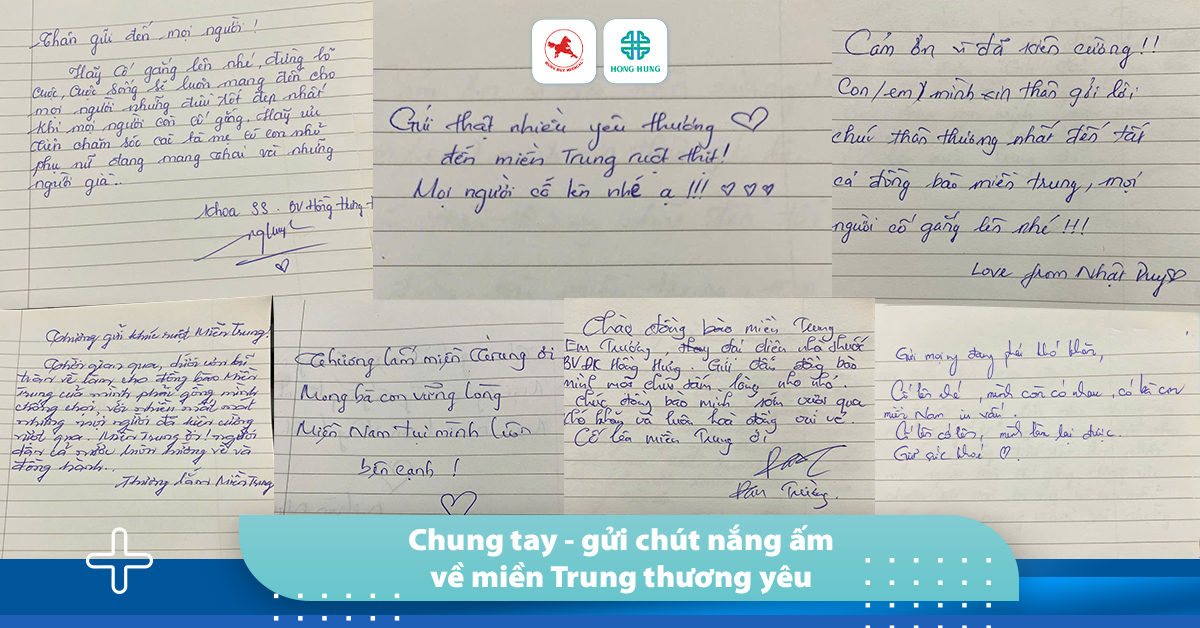 HONG HUNG
Thân gửi đến mọi người!
Hãy cố gắng lên nhé, đừng bỏ
cuộc, cuộc sống sẽ luôn mang đến cho
mọi người những điều tốt đẹp nhất
khi mọi người còn cố gắng. Hãy ưu
tiên chăm sóc các bà mẹ có con nhỏ
phụ nữ đang mang thai và những
người già..
Khoa SS. BV Hồng Hưng
Gửi thật nhiều yêu thương ♡
đến miền Trung ruột thịt!
Mọi người cố lên nhé ạ!!! ♡♡♡
Cảm ơn vì đã kiên cường!!
Con/em/mình xin thân gởi lời
chúc thân thương nhất đến tất
cả đồng bào miền trung, mọi
người cố gắng lên nhé!!!
Love from Nhật Duy♡
Thương gửi khúc ruột Miền Trung!
Thời gian qua, thiên tai
tràn về làm cho đồng bào Miền
Trung của mình phải gồng mình
chống chọi, với nhiều mất mát
nhưng mọi người đã kiên cường
vượt qua. Miền Trung ơi! người
dân cả nước luôn hướng về và
đồng hành..
Thương lắm Miền Trung
Thương lắm miền Trung ơi
Mong bà con vững lòng
Miền Nam tụi mình luôn
bên cạnh!
♡
Chào đồng bào miền Trung
Em Trường, đại diện nhà thuốc
BVĐK Hồng Hưng. Gửi đến đồng bào
mình một chút tấm lòng nho nhỏ.
Chúc đồng bào mình sớm vượt qua
khó khăn và luôn hoà đồng vui vẻ.
Cố lên miền Trung ơi
Văn Trường.
Gửi mọi ng đang phải khó khăn,
Cố lên nhé, mình còn có nhau, có bà con
miền Nam
Cố lên cố lên, mình làm lại được.
Giữ sức khoẻ ♡.
Chung tay - gửi chút nắng ấm
về miền Trung thương yêu